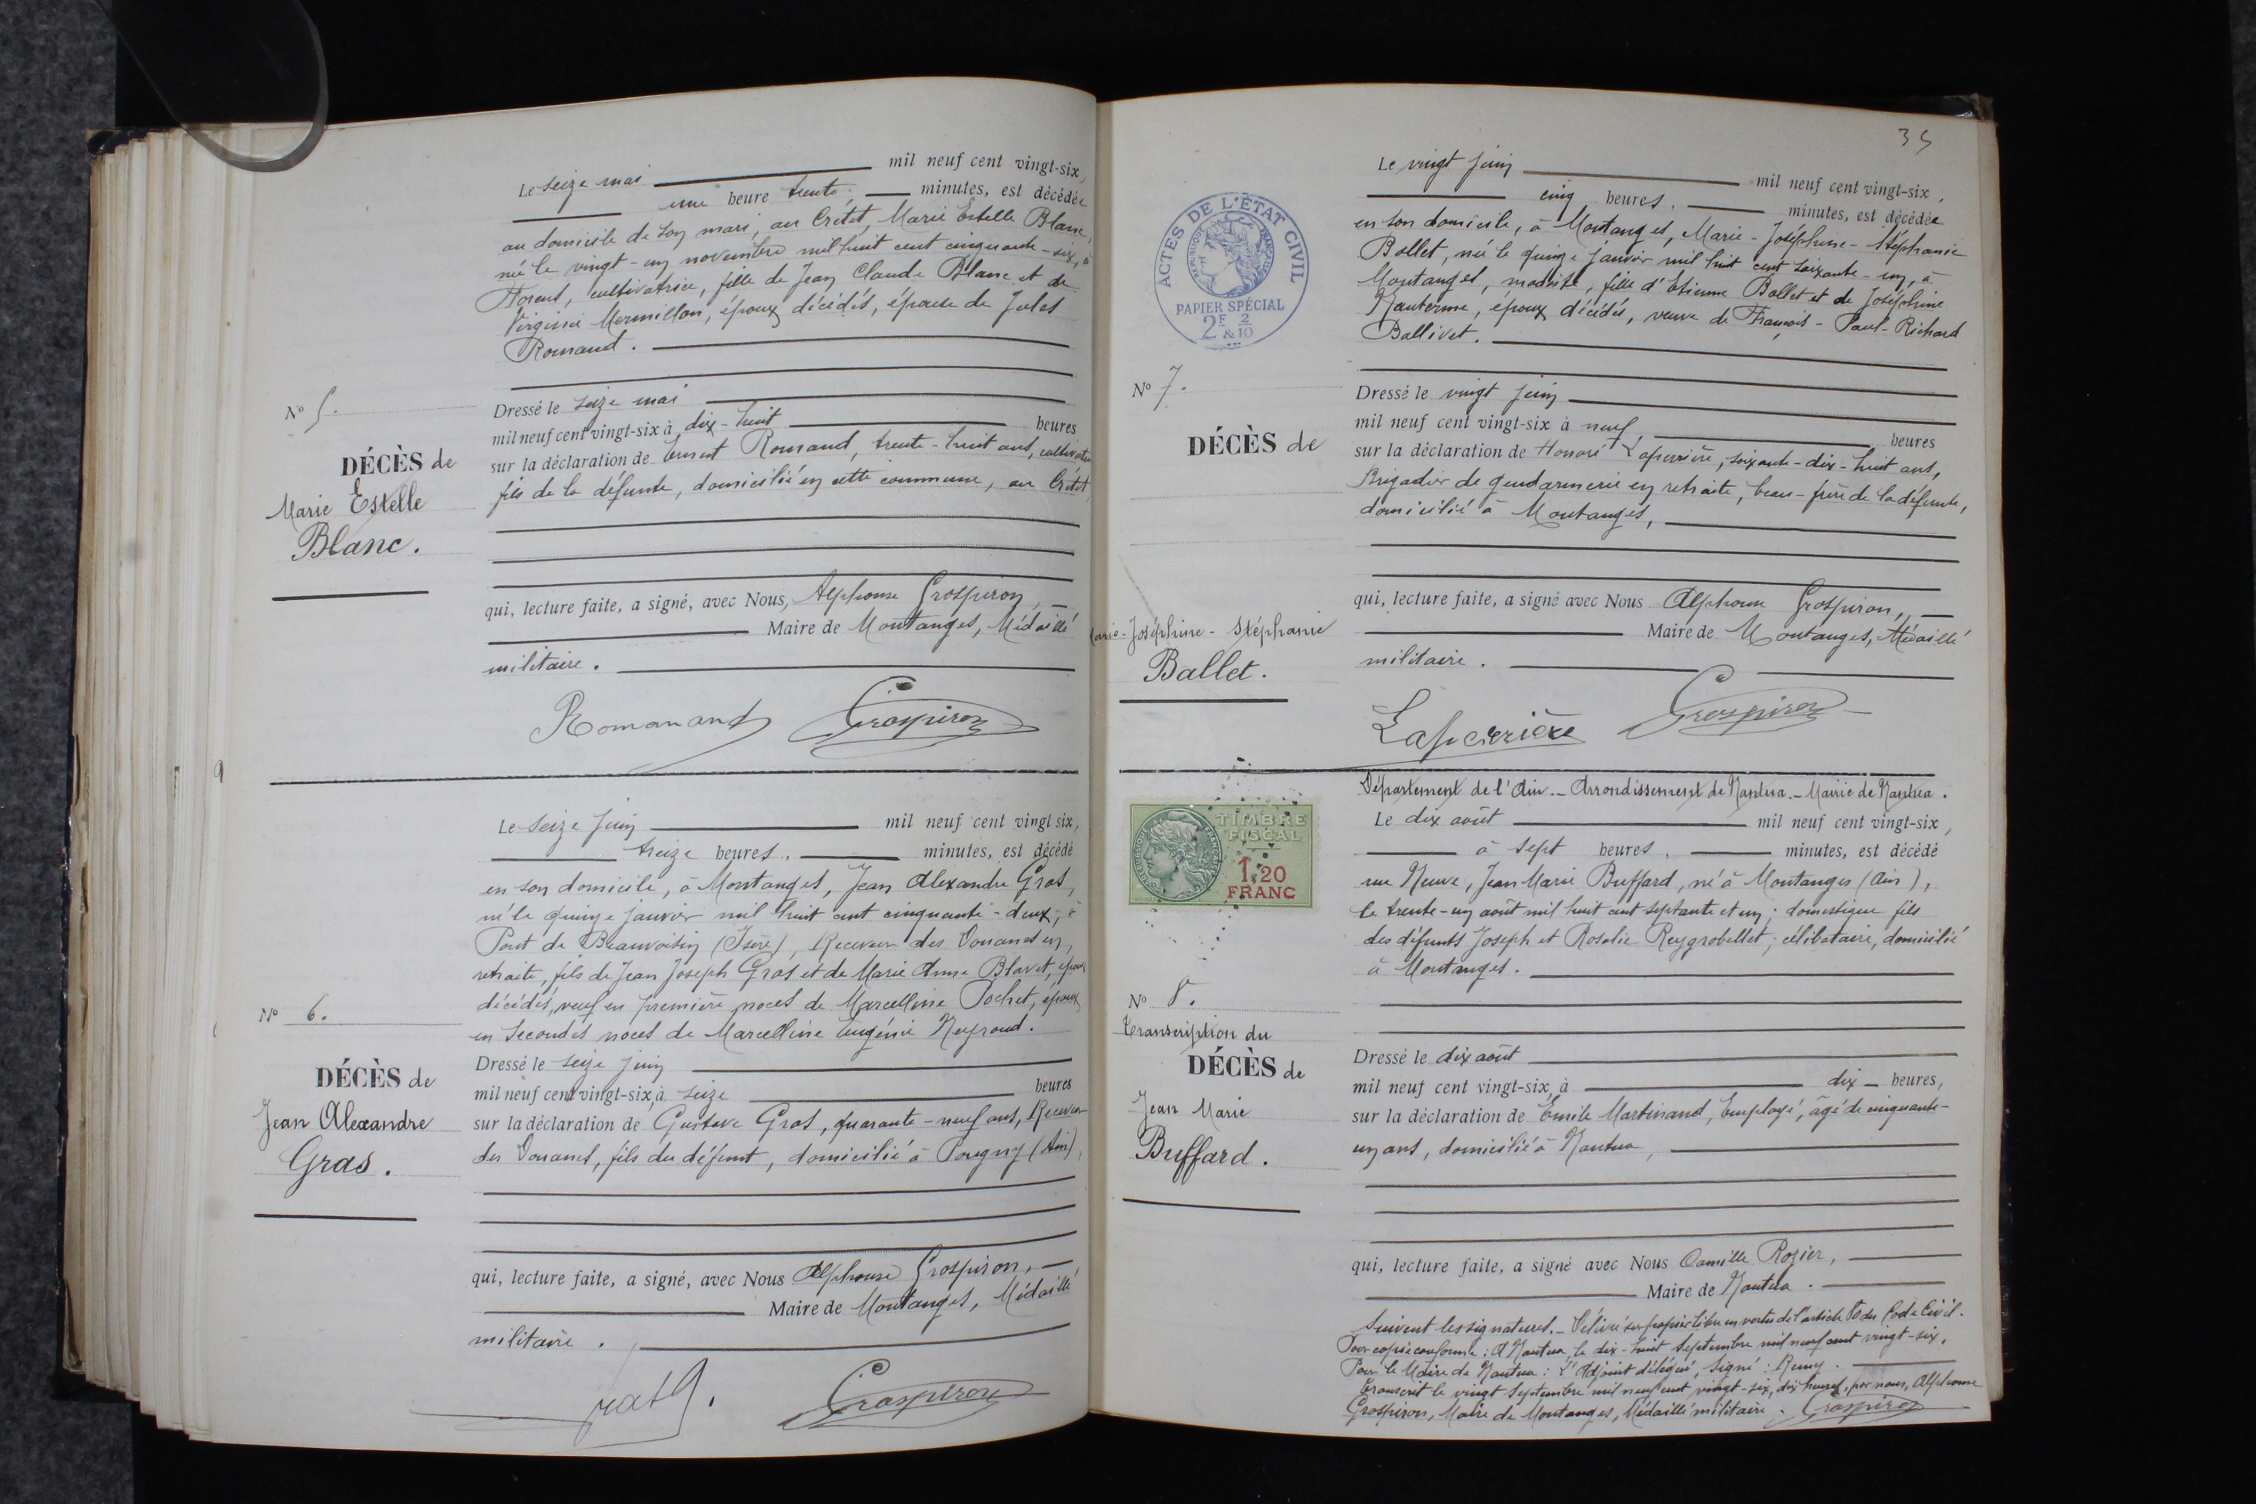 Le seize mai mil neuf cent vingt-six,
une heure trente minutes, est décédée
au domicile de son mari, au Crétet, Marie Estelle Blanc,
née le vingt-un novembre mil huit cent cinquante-six, à
Forens, cultivatrice, fille de Jean Claude Blanc et de
Virginie Mermillon, époux décédés, épouse de Jules
Romand.
Nº 5.
DÉCÈS de
Marie Estelle
Blanc.
Dressé le seize mai
mil neuf cent vingt-six à dix-huit heures
sur la déclaration de Ernest Romand, trente-huit ans, cultivateur
fils de la défunte, domicilié en cette commune, au Crétet
qui, lecture faite, a signé, avec Nous, Alphonse Grospiron,
Maire de Montanges, Médaillé
militaire.
Romanand Grospiron
Le seize juin mil neuf cent vingt six,
treize heures, minutes, est décédé
en son domicile, à Montanges, Jean Alexandre Gras,
né le quinze janvier mil huit cent cinquante-deux, à
Pont de Beauvoisin (Isère), Receveur des Douanes en
retraite, fils de Jean Joseph Gras et de Marie Anne Blavet, époux
décédés, veuf en première noces de Marcelline Pochet, époux
en secondes noces de Marcelline Eugénie Neyroud.
Nº 6.
DÉCÈS de
Jean Alexandre
Gras.
Dressé le seize juin
mil neuf cent vingt-six, à seize heures
sur la déclaration de Gustave Gras, quarante-neuf ans, Receveur
des Douanes, fils du défunt, domicilié à Pougny (Ain),
qui, lecture faite, a signé, avec Nous Alphonse Grospiron,
Maire de Montanges, Médaillé
militaire.
Grospiron
35
ACTES DE L'ÉTAT CIVIL
RÉPUBLIQUE FRANÇAISE
PAPIER SPÉCIAL
2F & 2/10
Le vingt juin mil neuf cent vingt-six,
cinq heures, minutes, est décédée
en son domicile, à Montanges, Marie-Joséphine-Stéphanie
Ballet, née le quinze janvier mil huit cent soixante-un, à
Montanges, modiste, fille d'Etienne Ballet et de Joséphine
Nauterme, époux décédés, veuve de François-Paul-Richard
Ballivet.
Nº 7.
DÉCÈS de
Marie-Joséphine-Stéphanie
Ballet.
Dressé le vingt juin
mil neuf cent vingt-six à neuf heures
sur la déclaration de Honoré Laperrière, soixante-dix-huit ans,
Brigadier de gendarmerie en retraite, beau-frère de la défunte,
domicilié à Montanges,
qui, lecture faite, a signé avec Nous Alphonse Grospiron,
Maire de Montanges, Médaillé
militaire.
Laperrière Grospiron
Département de l'Ain - Arrondissement de Nantua - Mairie de Nantua.
TIMBRE
FISCAL
1,20
FRANC
Le dix août mil neuf cent vingt-six,
à sept heures, minutes, est décédé
rue Neuve, Jean Marie Buffard, né à Montanges (Ain),
le trente-un août mil huit cent septante et un; domestique fils
des défunts Joseph et Rosalie Reygrobellet; célibataire, domicilié
à Montanges.
Nº 8.
Transcription du
DÉCÈS de
Jean Marie
Buffard.
Dressé le dix août
mil neuf cent vingt-six, à dix heures,
sur la déclaration de Emile Martinand, Employé, âgé de cinquante-
un ans, domicilié à Nantua,
qui, lecture faite, a signé avec Nous Camille Rozier,
Maire de Nantua.
Suivent les signatures. - Délivré sur papier libre en vertu de l'article du Code Civil.
Pour copie conforme: A Nantua le dix-huit Septembre mil neuf cent vingt-six.
Pour le Maire de Nantua: L'Adjoint délégué, signé: Remy.
Transcrit le vingt Septembre mil neuf cent vingt-six, dix heures, par nous, Alphonse
Grospiron, Maire de Montanges, Médaillé militaire. Grospiron